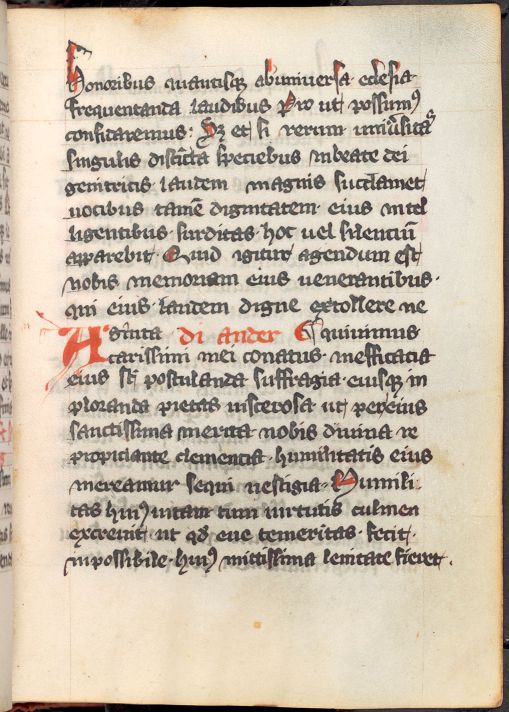 honoribus quantisq; ab universa eclesia
frequentanda laudibus Pro ut possumꝰ
confidaremus: Sꝫ et si rerum univͥsitaˢ
singulis districta speciebus in beate dei
genitricis laudem magnis succlamet
uocibus tamē dignitatem eius intel
ligentibus surditas hoc uel silenciū
apparebit Quid igitur agendum est
nobis memoriam eius uenerantibus
qui eius laudem digne extollere ne
di ander quiuimus
Acarissimi mei conatus inefficatia
eius sꝫ postulanda suffragia eiusq; in
ploranda pietas uiscerosa ut per eius
sanctissima merita nobis diuina re
propiciante clementia humilitatis eius
mereamur sequi uestigia Humili
tas huiꝰ uitam tum uirtutis culmea
excreuit ut qd̄ eue temeritas fecit
inpossibile huiꝰ mittissima lenitate fieret.